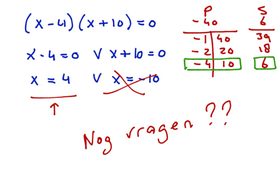 (x-4)(x+10)=0
x-4=0 V x+10=0
x=4 V x=-10
P S
-40 6
-1 40 39
-2 20 18
-4 10 6
Nog vragen??